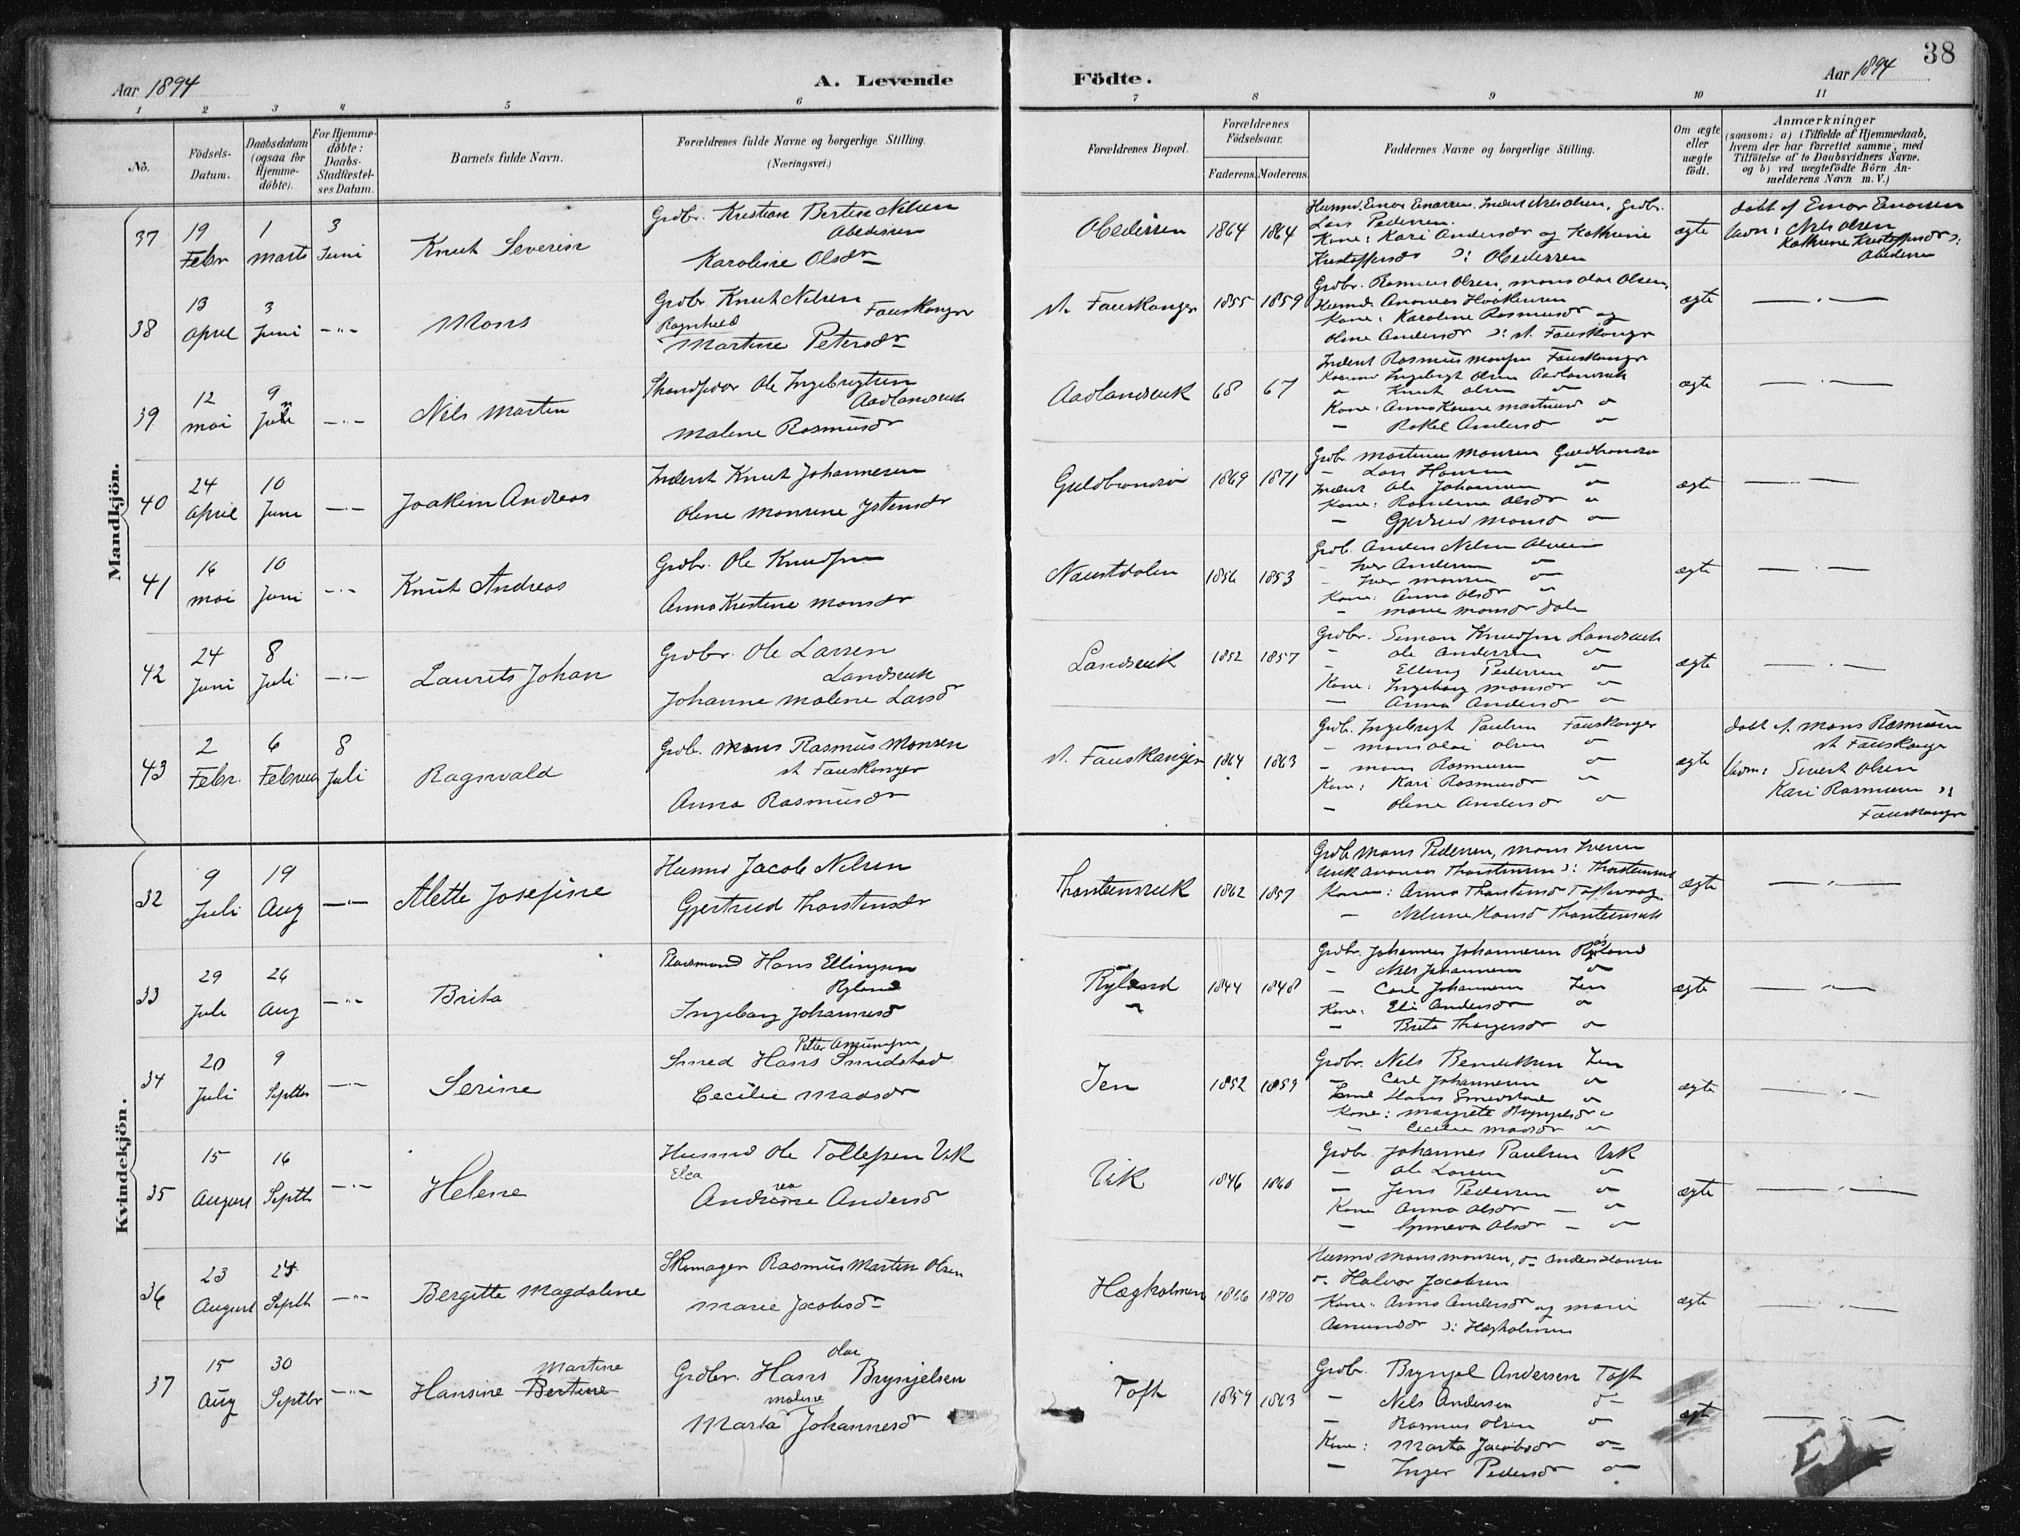 38
Aar 1894
A. Levende
Födte.
Aar 1894
1 2 3 4 5 6 7 8 9 10 11
No.
Födsels-Datum.
Daabsdatum (ogsaa for Hjemme-döbte).
For Hjemme-döbte: Daabs-Stadfæstel-ses Datum.
Barnets fulde Navn.
Forældrenes fulde Navne og borgerlige Stilling.
(Næringsvei.)
Forældrenes Bopæl.
Forældrenes Födselsaar.
Faderens. Moderens.
Faddernes Navne og borgerlige Stilling.
Om ægte eller uægte födt.
Anmærkninger
(saasom: a) i Tilfælde af Hjemmedaab, hvem der har forrettet samme, med Tilföielse af to Daabsvidners Navne. og b) ved uægtefödte Börn An-melderens Navn m. V.)
Mandkjön.
37
19 Febr
1 marts
3 Juni
Knut Severin
Grdbr. Kristian Bertin Nilsen
Karoline Olsdr
1864 1864
Lars Pedersen
Kone: Kari Andersdr og Kathrine
ægte
Nils Olsen
38
13 April
3 Juni
Mons
Grdbr. Knut Nilsen Fauskanger
Ragnhild
Martine Petersdr
st. Fauskanger
1855 1859
Grdbr. Rasmus Olsen, Mons Olai Olsen,
Kone: Karoline Rasmusdr og
Oline Andersdr ɔ: st. Fauskanger
ægte
39
12 mai
9 Juni
Nils Martin
Ole Ingebrigtsen
Aadlandsvik
Malene Rasmusdr
Aadlandsvik
68 67
Inderst Rasmus Monsen Fauskanger
Ingebrigt Olsen Aadlandsvik
Knut Olsen
Rakel Andersdr
ægte
40
24 April
10 Juni
Joakim Andreas
Inderst Knut Johannesen
Oline Monsine Istensdr
Guldbrandsø
1869 1871
Grdbr. Martinus Monsen Guldbrandsø
Lars Hansen
Inderst Ole Johannesen
Kone: Randine Olsdr
Gjertrud Monsd
ægte
41
16 mai
10 Juni
Knut Andreas
Grdbr. Ole Knudsen
Anna Kristine Monsdr
Naustdalen
1856 1853
Grdb. Anders Nilsen
Iver Andersen
Iver Monsen
Kone: Anna Olsdr
Marie Monsdr Dale
ægte
42
24 Juni
8 Juli
Laurits Johan
Grdbr. Ole Larsen
Landsvik
Johanne Malene Larsd
Landsvik
1852 1857
Grdbr. Simon Knudsen Landsvik
Ole Andersen
Elling Pedersen
Kone: Ingeborg Monsdr
Anna Andersdr
ægte
43
2 Febr.
6 Februar
8 Juli
Ragnvald
Grdb. Rasmus Monsen
st Fauskanger
Anna Rasmusdr
st. Fauskanger
1864 1863
Grdb. Ingebrigt Paulsen Fauskanger
Mons Olai Olsen
Mons Rasmusen
Kone: Kari Rasmusdr
Oline Andersdr
ægte
døbt af Mons Rasmusen
st Fauskanger
Sivert Olsen
Kari Rasmusen ɔ:
Fauskanger
Kvindekjön.
32
9 Juli
19 Aug
Alette Josefine
Husmd Jacob Nilsen
Gjertrud Thorstensdr
Thorstensvik
1862 1857
Grdb Mons Pedersen, Mons Iversen
Kone: Anna Thorstensd
Thorstensvik
ægte
33
29 Juli
26 Aug
Brita
Pladsmand Hans Ellingsen
Ryland
Ingeborg Johannesd
Ryland
1844 1848
Grdbr. Johannes Johannesen Ryland
Nils Johannesen
Carl Johannesen Jen
Kone: Eli Andersdr
Brita Thorgersdr
ægte
34
20 Juli
9 Septbr
Serine
Petter Amundsen
Smed Hans Smedstad
Cecilie Madsdr
Jen
1852 1859
Grdbr. Nils Bendiktsen Jen
Carl Johannesen
Smed Hans Smedstad
Kone: Margrete
Cecilie Madsdr
ægte
35
15 August
16 Septb
Helene
Husmd Ole Tollefsen Vik
Elea
Andrine Andersd
Vik
1846 1860
Grdbr. Johannes Paulsen Vik
Ole Larsen
Jens Pedersen
Kone Anna Olsdr
Synneva Olsdr
ægte
36
23 August
24 Septb
Bergitte Magdalene
Skomager Rasmus Martin Olsen
Marie Jacobsdr
Hægholmen
1866 1870
Husmd Mons Monsen, Anders Hansen
Halvor Jacobsen
Kone: Anna Andersdr og Marie
Asmundsdr ɔ: Hægholmen
ægte
37
15 Aug
30 Septbr
Martine
Hansine Bertine
Olai
Grdbr. Hans Brynjelsen
Malene
Marta Johannesd
Toft
1859 1863
Grdbr. Brynjel Andersen Toft
Nils Andersen
Rasmus Olsen
Kone: Marta Jacobsdr
Inger Pedersdr
ægte